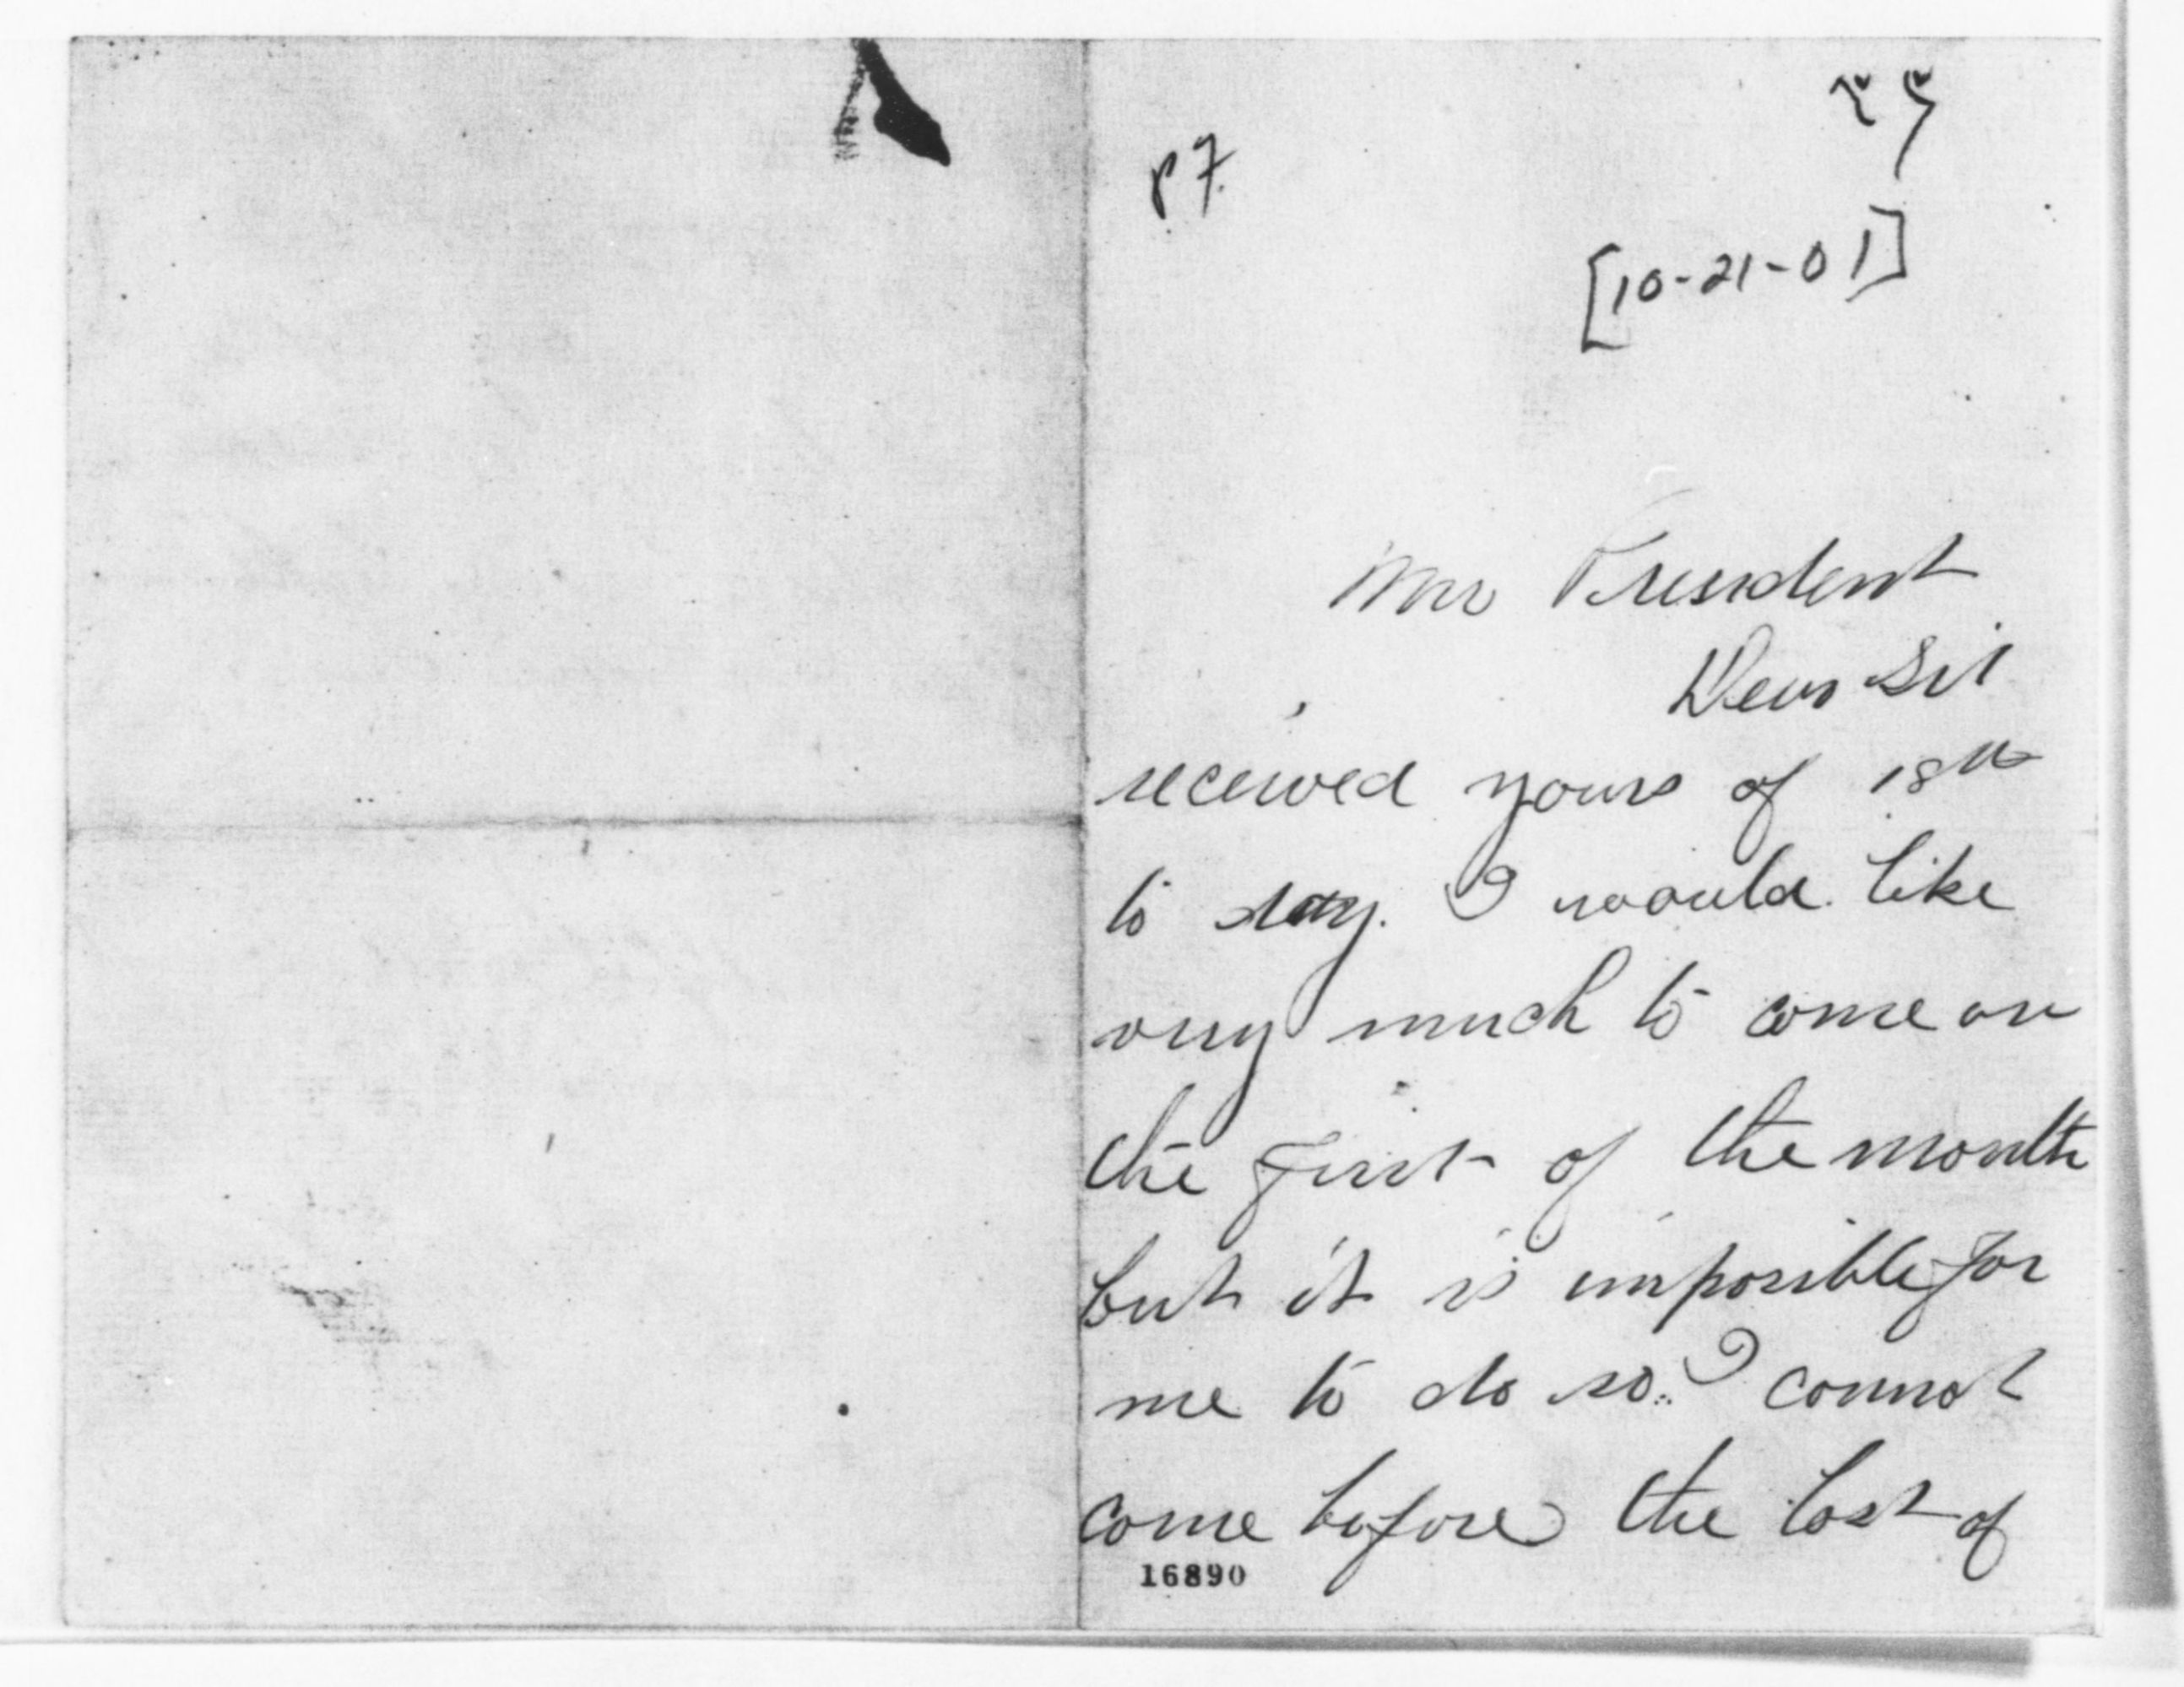 P7.
[10-21-01]
Mr President
Dear Sir
received yours of 18th
to day. I would like
very much to come on
the first of the month
but it is imposible for
me to do so. I connot
come before the last of
16890